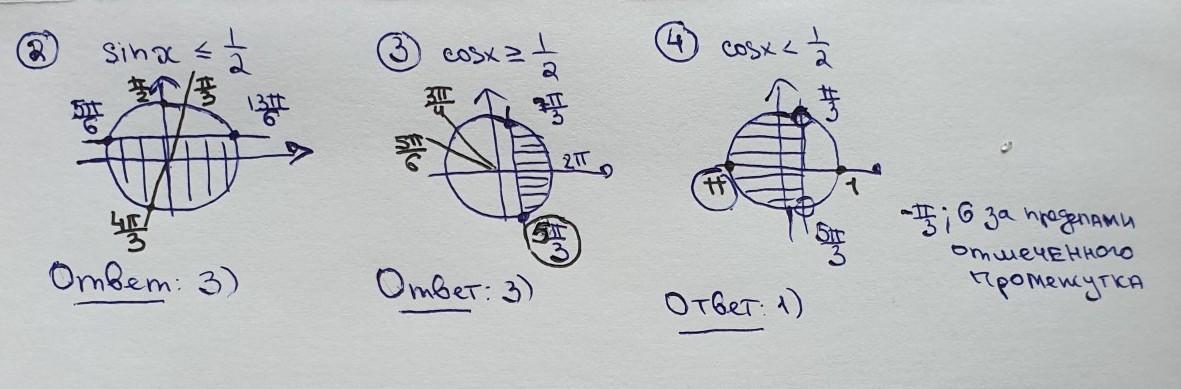 ② sin x ≤ 1/2
π/2 π/3
5π/6 13π/6
4π/3
Ответ: 3)
③ cos x ≥ 1/2
3π/4 7π/3
5π/6 2π
5π/3
Ответ: 3)
④ cos x < 1/2
π/3
π 1
5π/3
Ответ: 1)
-π/3; 6 за пределами
отмеченного
промежутка